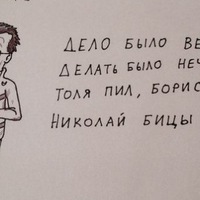 ДЕЛО БЫЛО ВЕ
ДЕЛАТЬ БЫЛО НЕЧ
ТОЛЯ ПИЛ, БОРИС
НИКОЛАЙ БИЦЫ